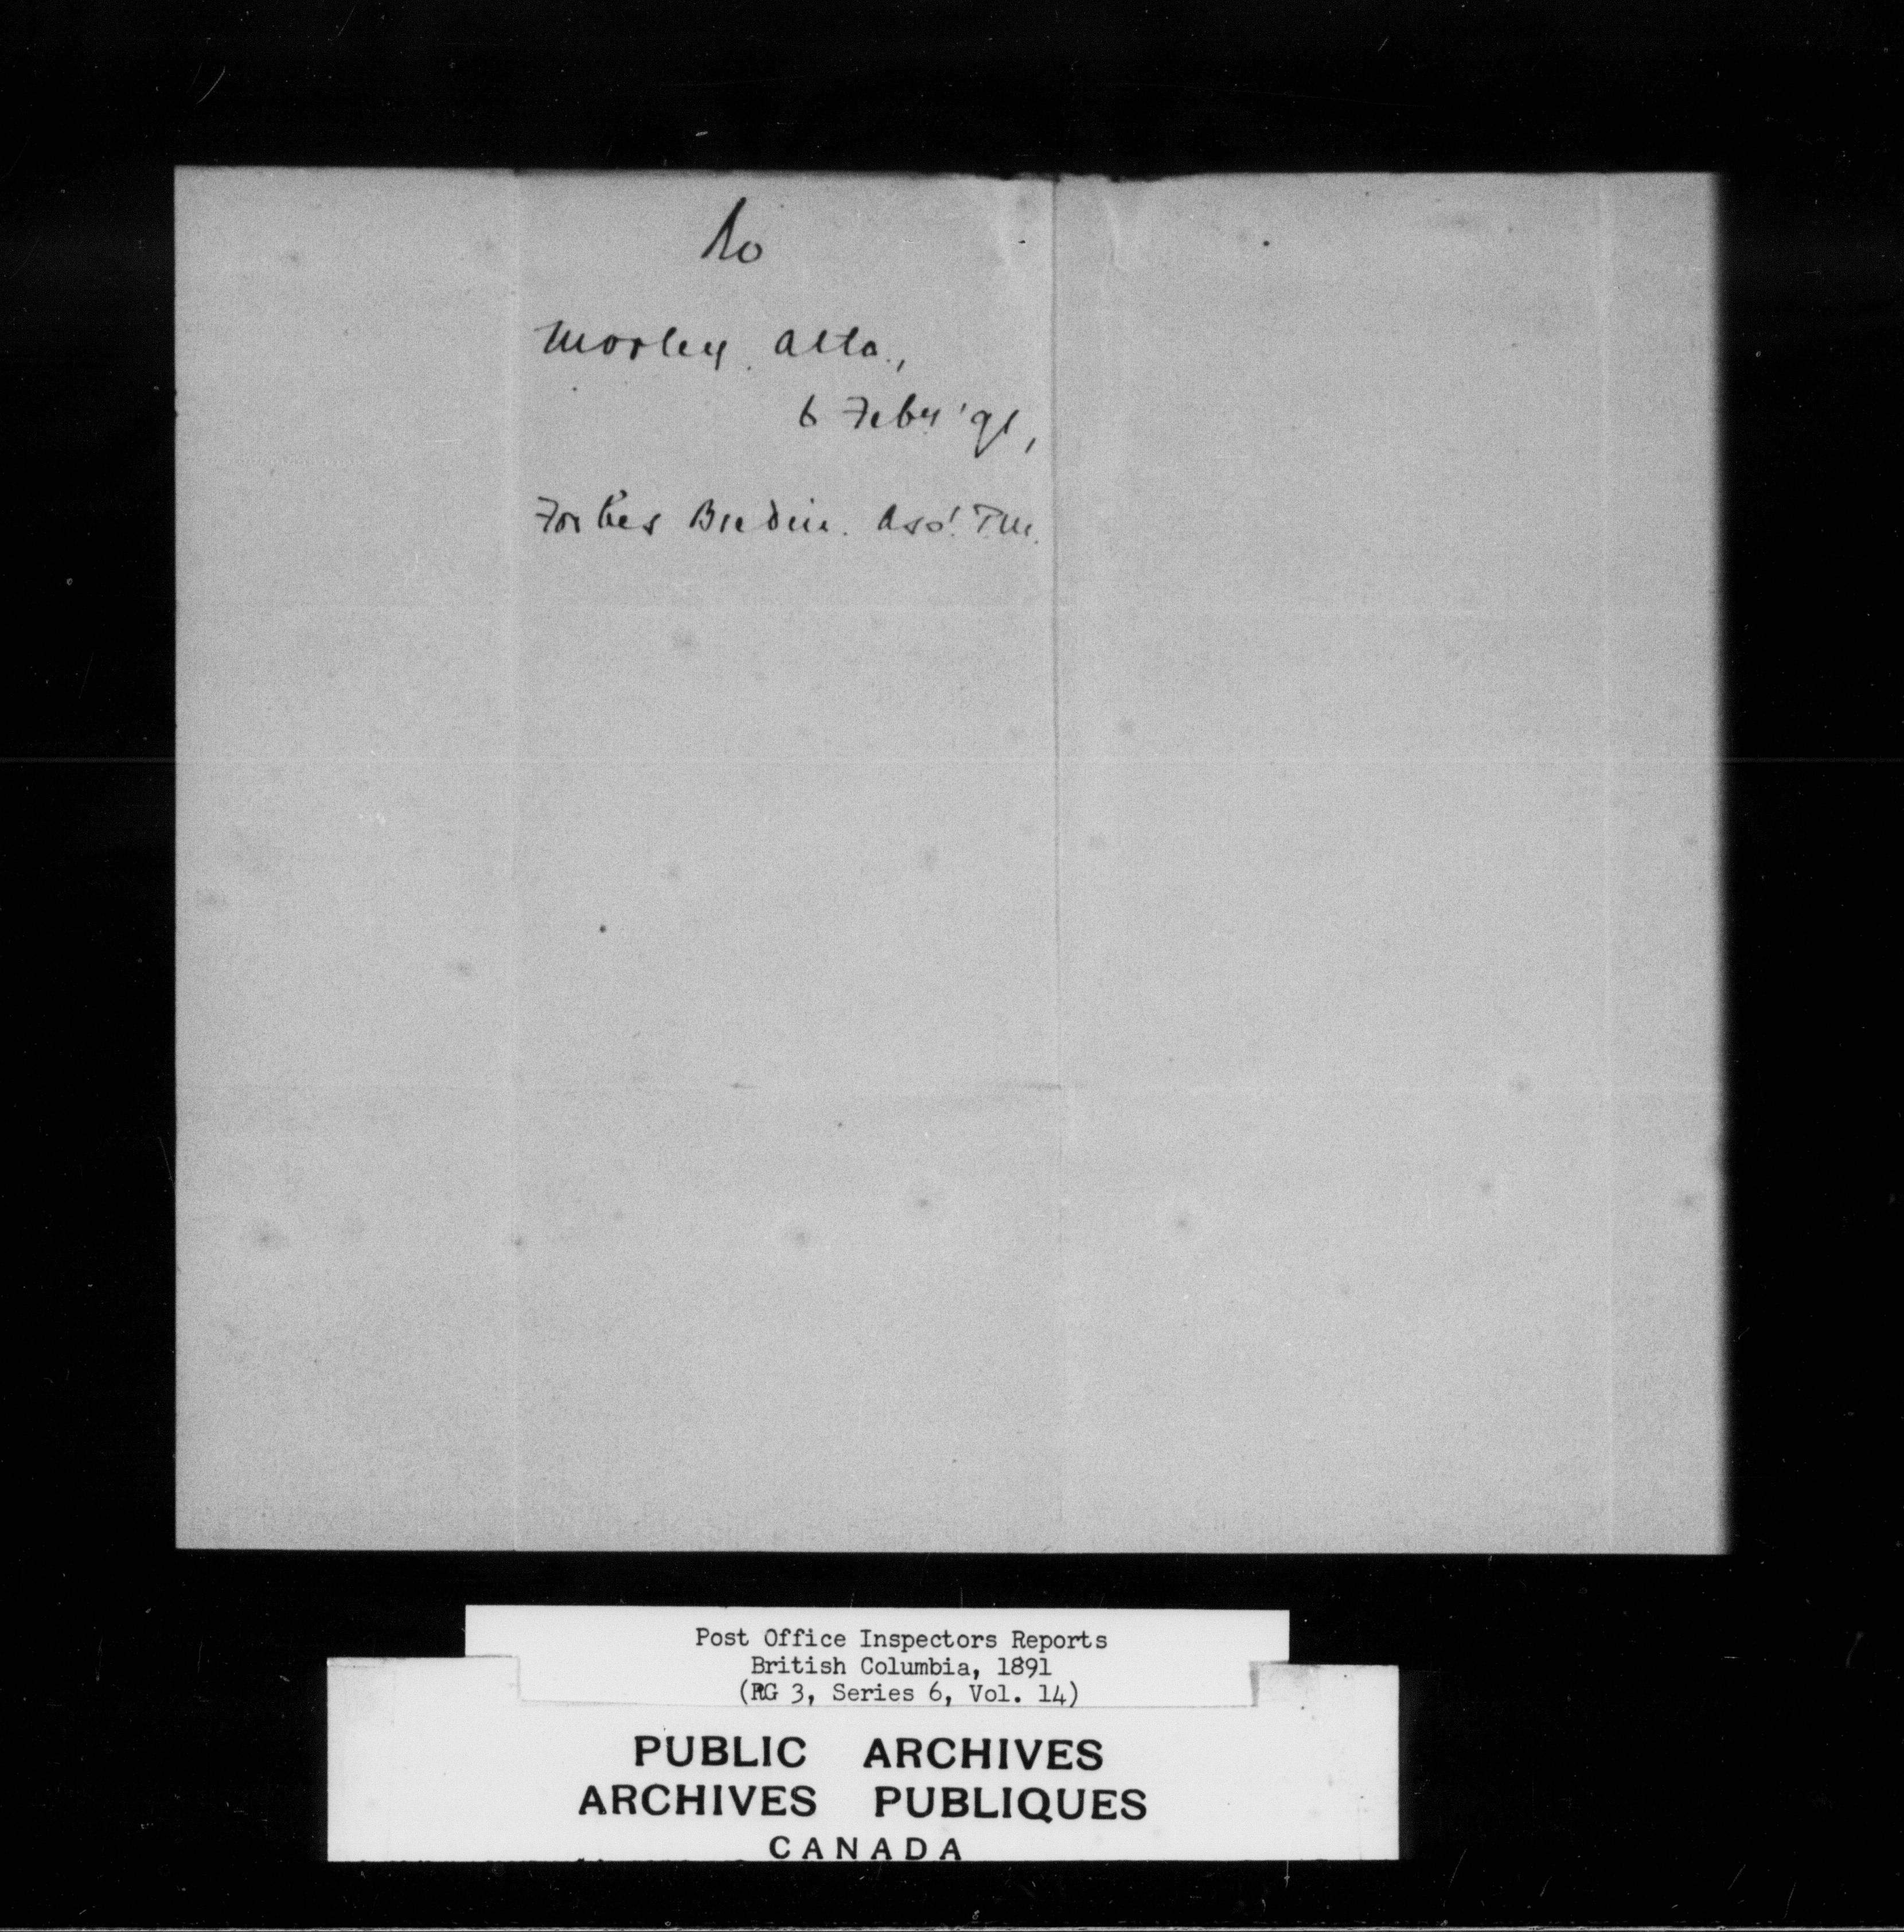 No
Morley. Alta.,
6 Feby '91,
Forbes Bredin. Asst. P.M.
Post Office Inspectors Reports
British Columbia, 1891
(RG 3, Series 6, Vol. 14)
PUBLIC ARCHIVES
ARCHIVES PUBLIQUES
CANADA